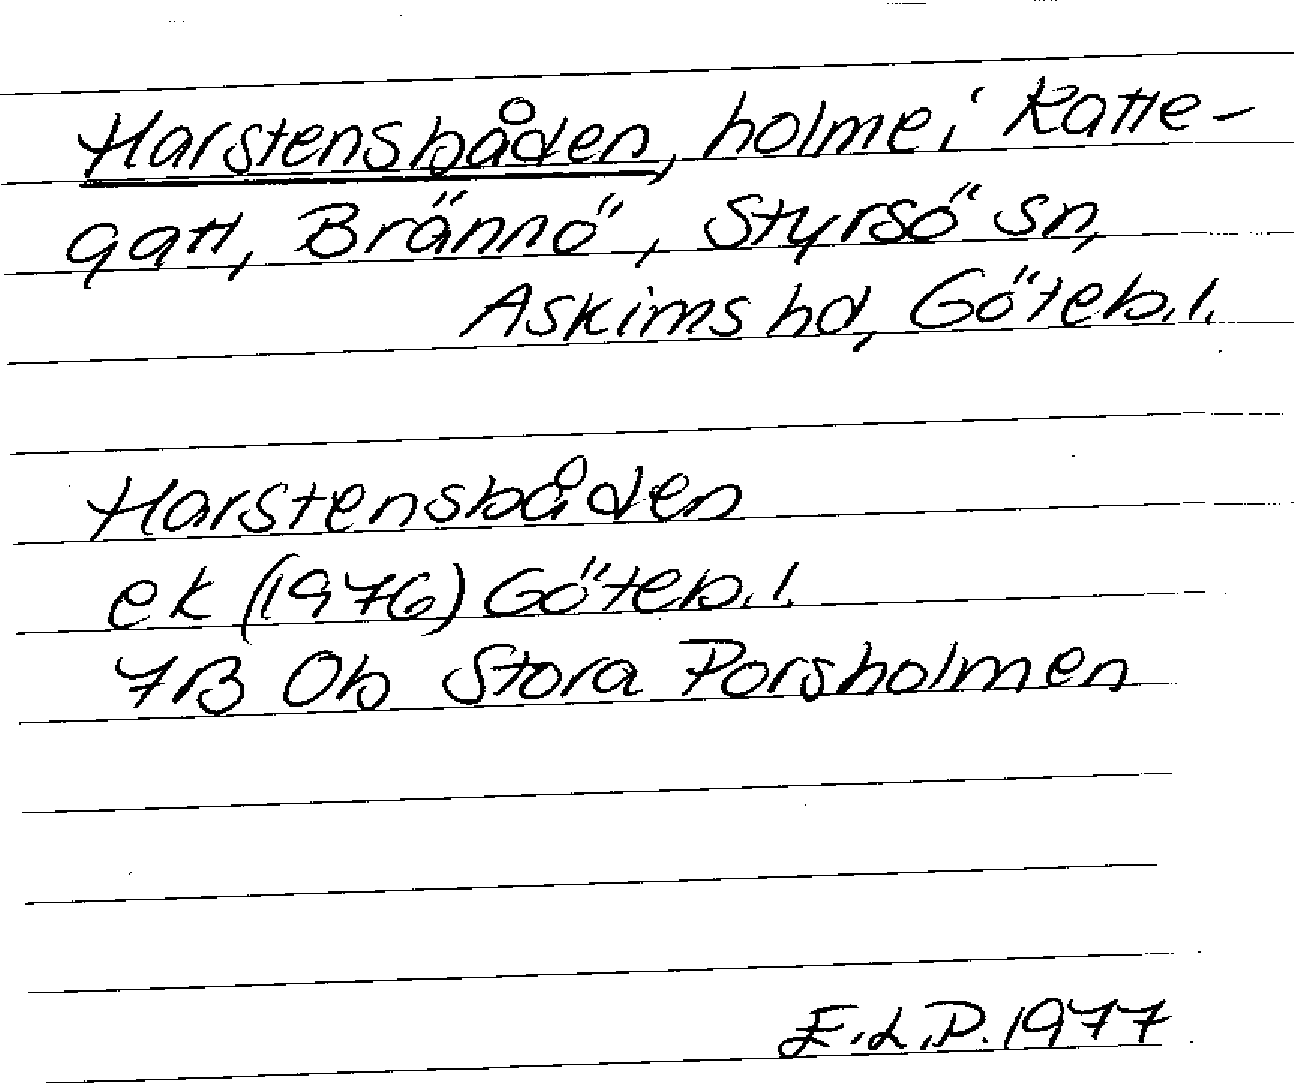 Harstensbåden, holme i Katte-
gatt, Brännö, Styrsö sn,
Askims hd, Göteb.l.
Harstensbåden
ek (1976) Göteb.l.
7B Ob Stora Porsholmen
E.L.P. 1977